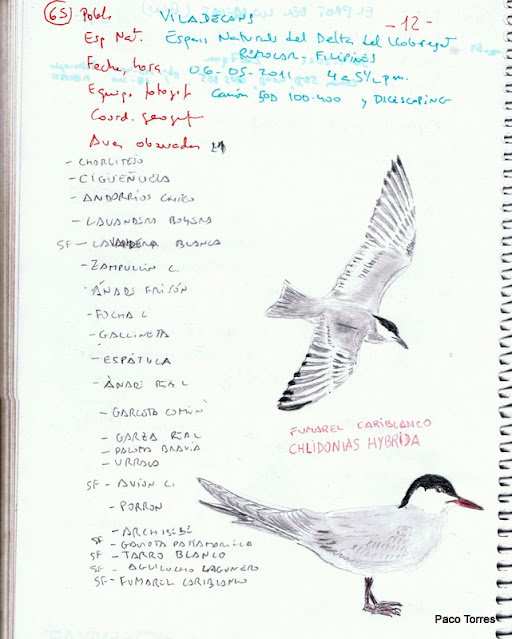 65 Pobl. VILADECANS -12-
Esp Nat. Espais Naturals del Delta del Llobregat
REMOLAR-FILIPINES
Fecha, hora. 06-05-2011 4 a 5½ p.m.
Equipo fotogrf Canon 50D 100-400 y DIGISCOPING
Coord. geograf
Aves observadas 21
- CHORLITEJO
- CIGÜEÑUELA
- ANDARRIOS CHICO
- LAVANDERA BOYERA
SF - LAVANDERA BLANCA
- ZAMPULLIN C.
- ÁNADE FRISÓN
- FOCHA C
- GALLINETA
- ESPÁTULA
- ÁNADE REAL
- GARCETA COMÚN
- GARZA REAL
- PALOMA BRAVIA
- URRACA
SF - AVION C.
- PORRON
- ARCHIBEBE
SF - GAVIOTA PATIAMARILLA
SF - TARRO BLANCO
SF - AGUILUCHO LAGUNERO
SF - FUMAREL CARIBLANCO
FUMAREL CARIBLANCO
CHLIDONIAS HYBRIDA
Paco Torres